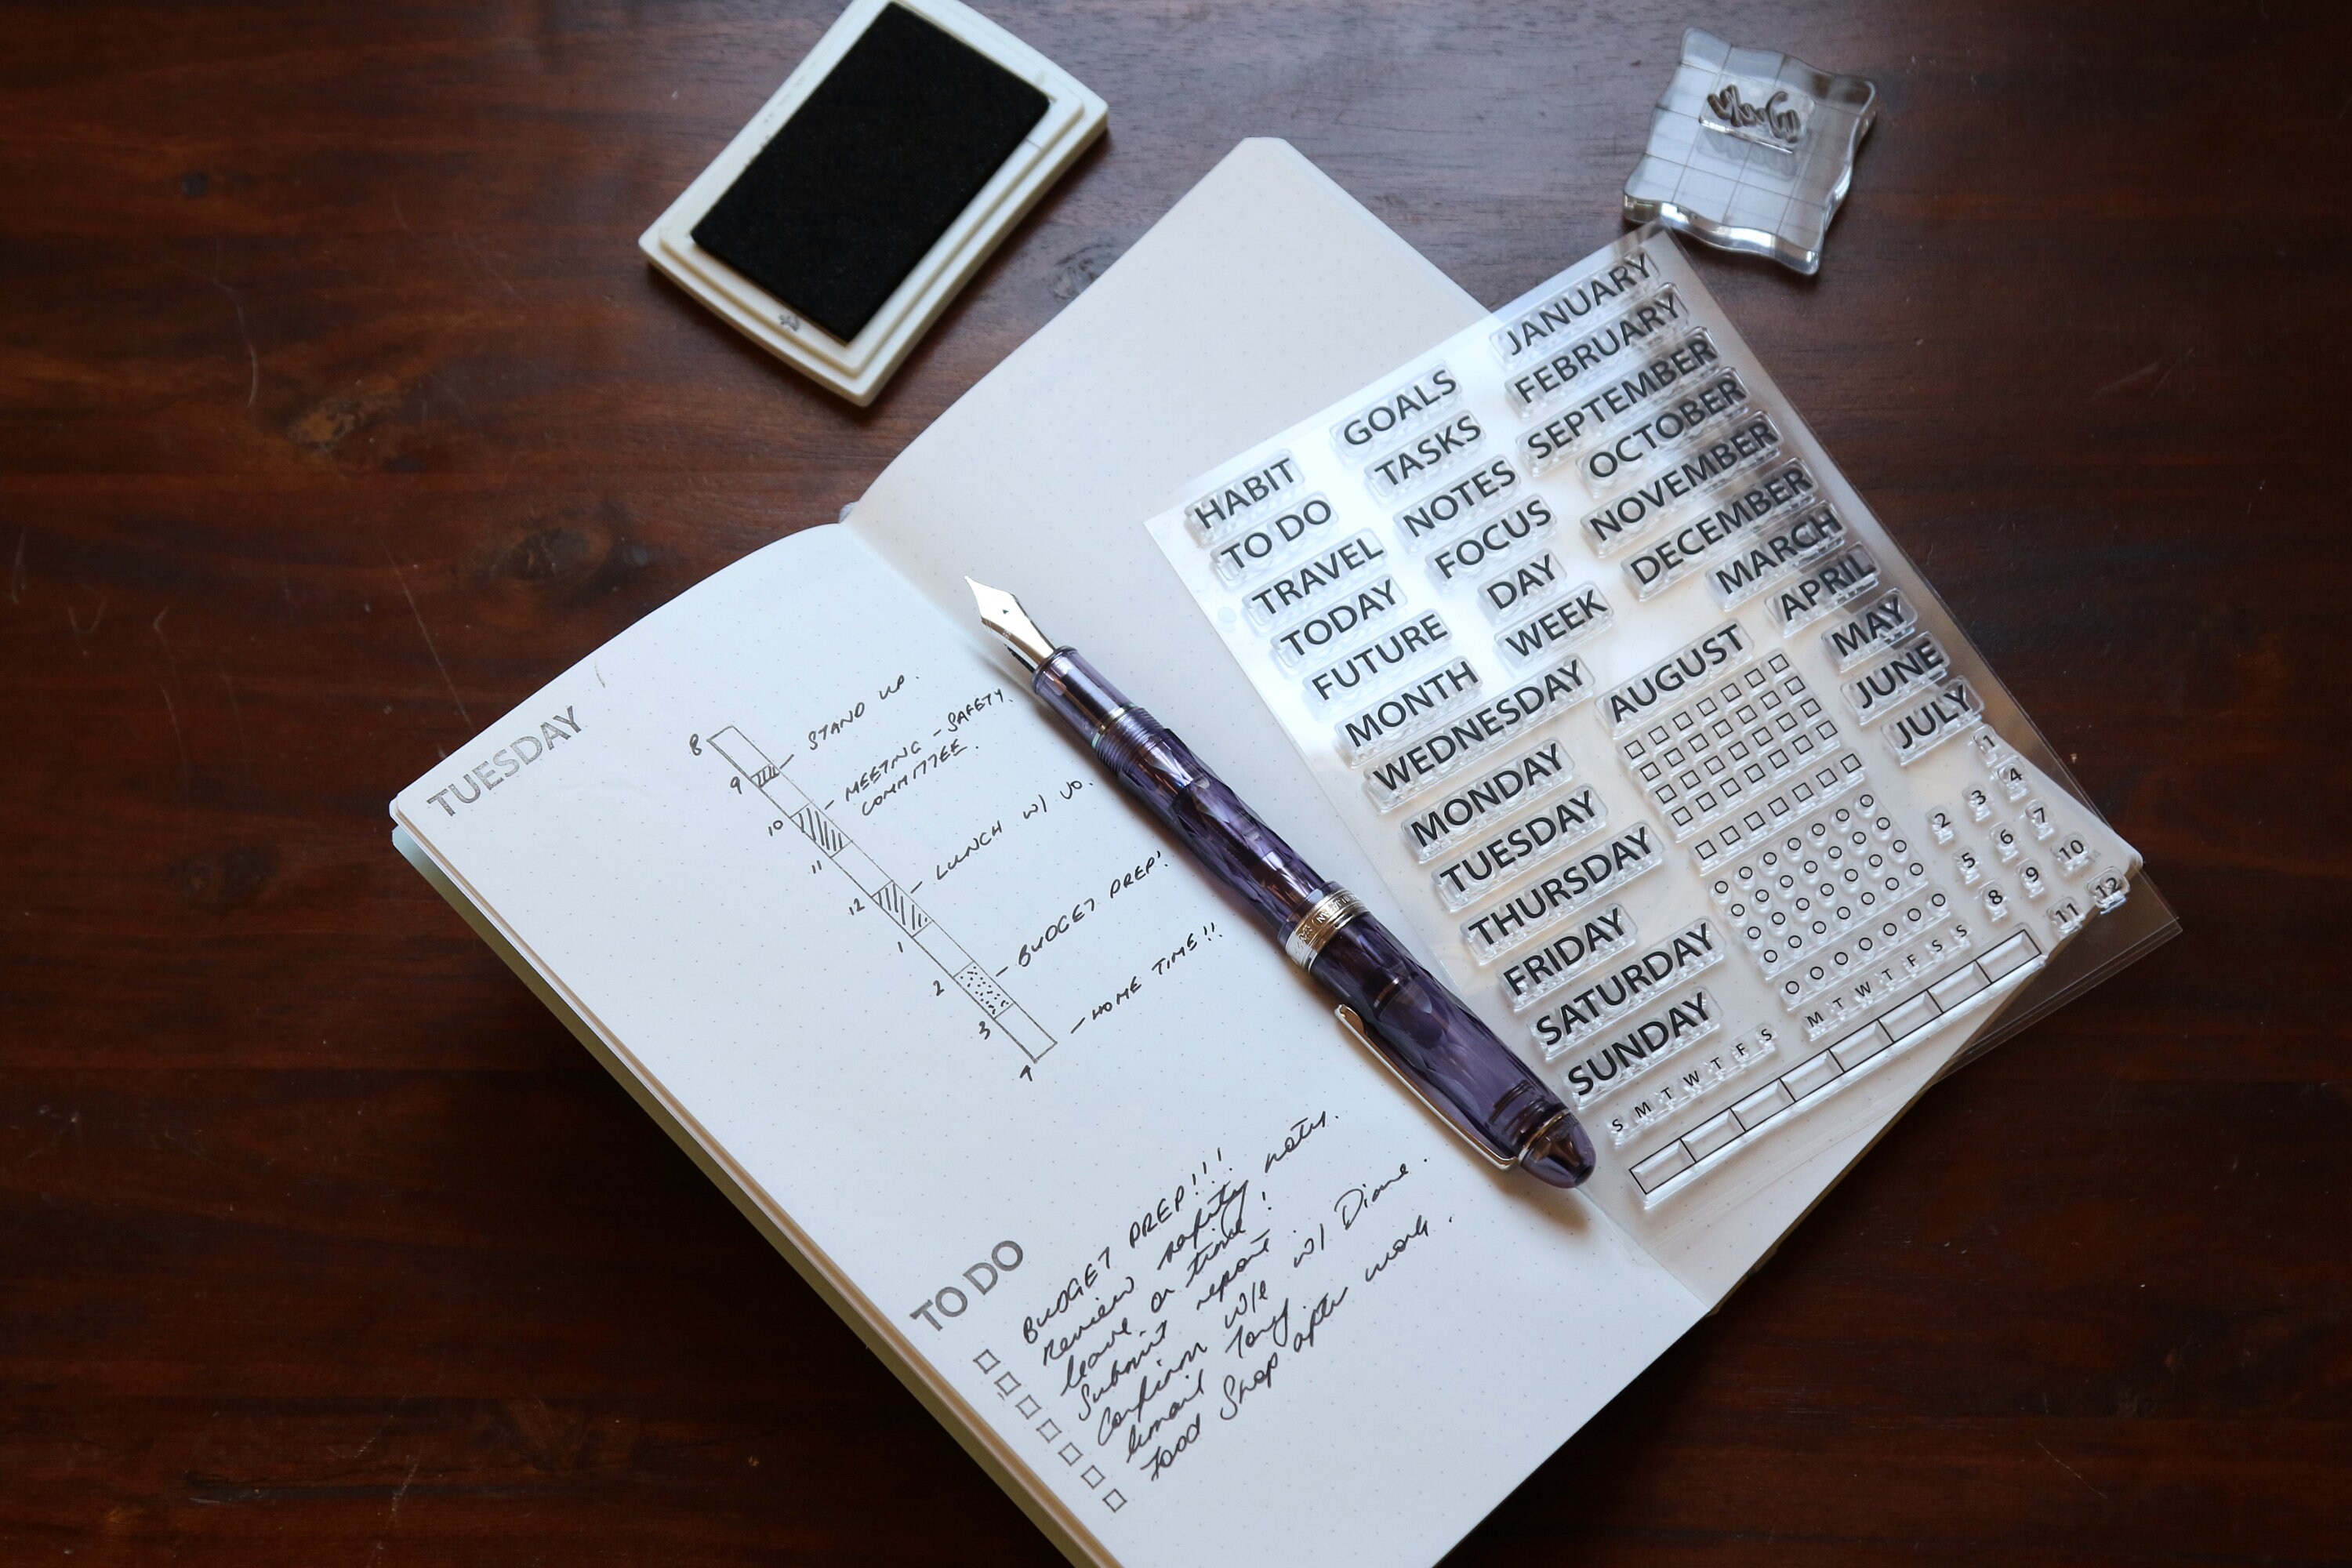 TUESDAY
8
9
10
11
12
1
2
3
STAND UP.
MEETING - SAFETY
COMMITTEE.
LUNCH w/ JO.
BUDGET PREP!
HOME TIME!!
TO DO
BUDGET PREP!!!
Review safety notes.
leave on time!
Submit report
Confirm w/e w/ Diane.
email Tony.
Food Shop after work.
HABIT
TO DO
TRAVEL
TODAY
FUTURE
MONTH
WEDNESDAY
MONDAY
TUESDAY
THURSDAY
FRIDAY
SATURDAY
SUNDAY
S M T W T F S
GOALS
TASKS
NOTES
FOCUS
DAY
WEEK
AUGUST
M T W T F S S
JANUARY
FEBRUARY
SEPTEMBER
OCTOBER
NOVEMBER
DECEMBER
MARCH
APRIL
MAY
JUNE
JULY
1
2 3 4
5 6 7
8 9 10
11 12